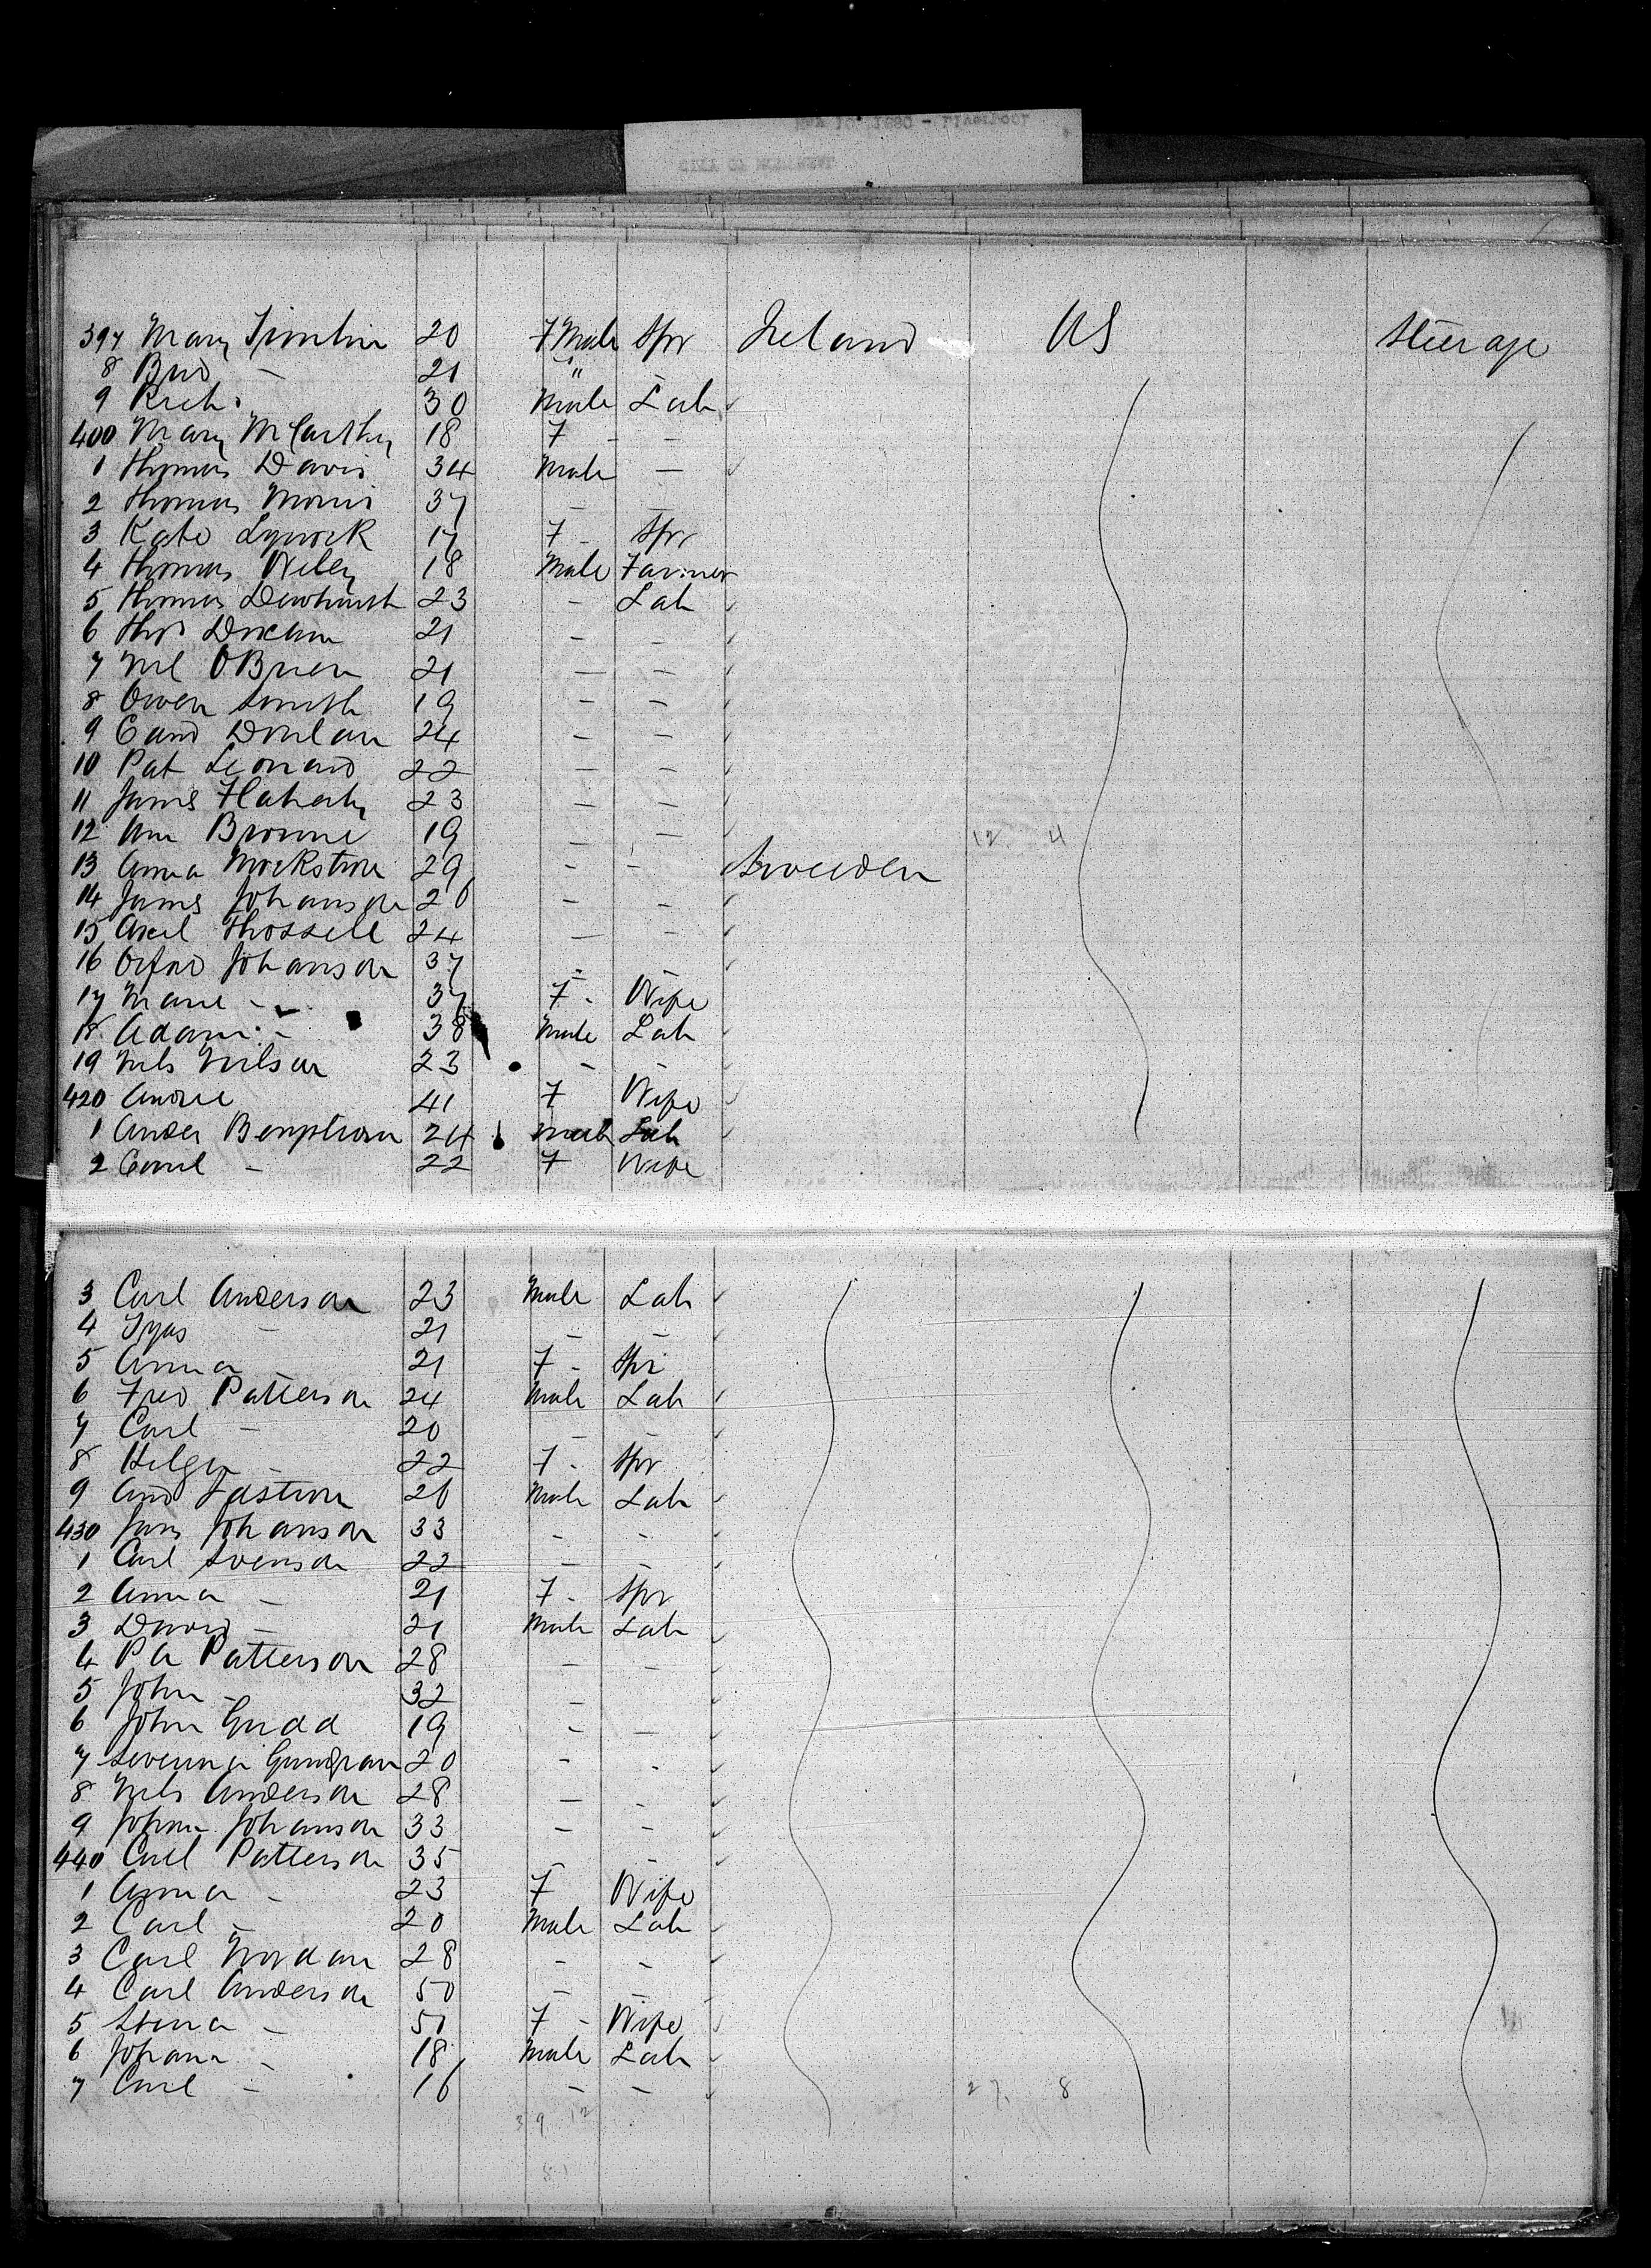 397 Mary Timlin 20 F Male Spr Ireland US Steerage
8 Brid - 21 " -
9 Rich. 30 Male Lab
400 Mary McCarthy 18 F - -
1 Thomas Davis 34 Male -
2 Thomas Morris 37 - -
3 Kate 17 F - Spr
4 Thomas Wiley 18 Male Farmer
5 Thomas Dewhurst 23 - Lab
6 Thos 21 - -
7 Ml OBrien 21 - -
8 Owen Smith 19 - -
9 Donlan 24 - -
10 Pat Leonard 22 - -
11 James Flaherty 23 - -
12 Ann Browne 19 - - 12 4
13 Anna 29 - - Sweeden
14 James Johanson 26 - -
15 Axel Thossell 24 - -
16 Johanson 37 - -
17 Marie - 37 F - Wife
18 Adam - 38 Male Lab
19 Nils Nilson 23 - -
420 41 F Wife
1 Ander 24 Male Lab
2 - 22 F Wife
3 Carl Anderson 23 Male Lab
4 - 21 - -
5 Anna - 21 F - Spr
6 Fred Patterson 24 Male Lab
7 Carl - 20 - -
8 Helga - 22 F - Spr
9 And 26 Male Lab
430 Jans Johanson 33 - -
1 Carl Svenson 22 - -
2 Anna - 21 F - Spr
3 David - 21 Male Lab
4 Patterson 28 - -
5 John - 32 -
6 John 19 - -
7 20 - -
8 Nils Anderson 28 - -
9 Johan Johanson 33 - -
440 Carl Patterson 35 - -
1 Anna - 23 F Wife
2 Carl - 20 Male Lab
3 Carl Nordan 28 - -
4 Carl Anderson 50 - -
5 Stina - 51 F - Wife
6 Johan - 18 Male Lab
7 Carl - 16 - - 27. 8
39 12
51